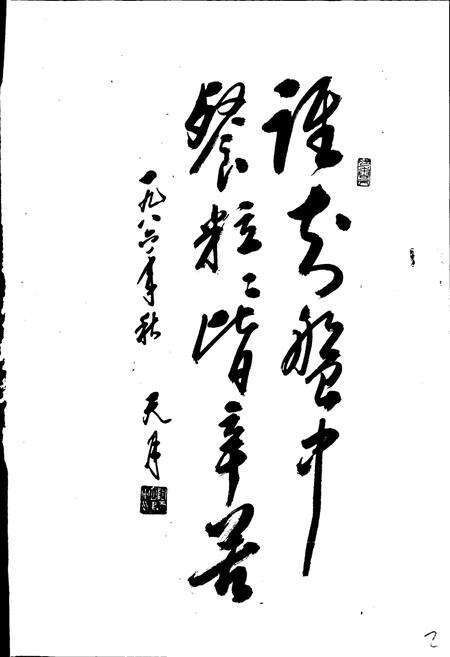 谁知盘中
餐粒々皆辛苦
一九八六年秋
天月